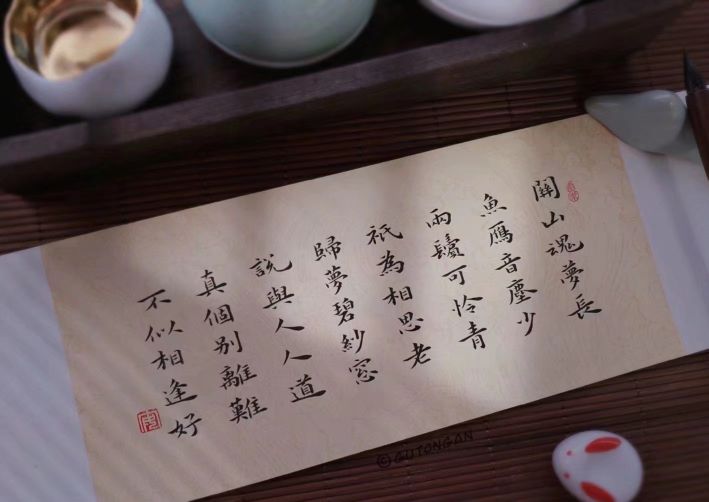 關山魂夢長
魚鴈音塵少
兩鬢可憐青
祇為相思老
歸夢碧紗窓
說與人人道
真個別離難
不似相逢好
©GUTONGAN